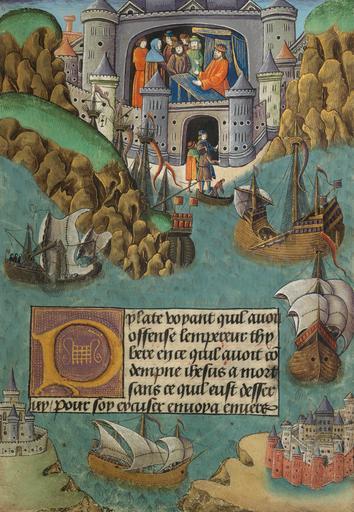 Pylate voyant quil avoit
offense lempereur thy
bere en ce quil avoit co
dempne ihesus a mort
sans ce quil eust desser
uy / pour soy excuser envoya envers